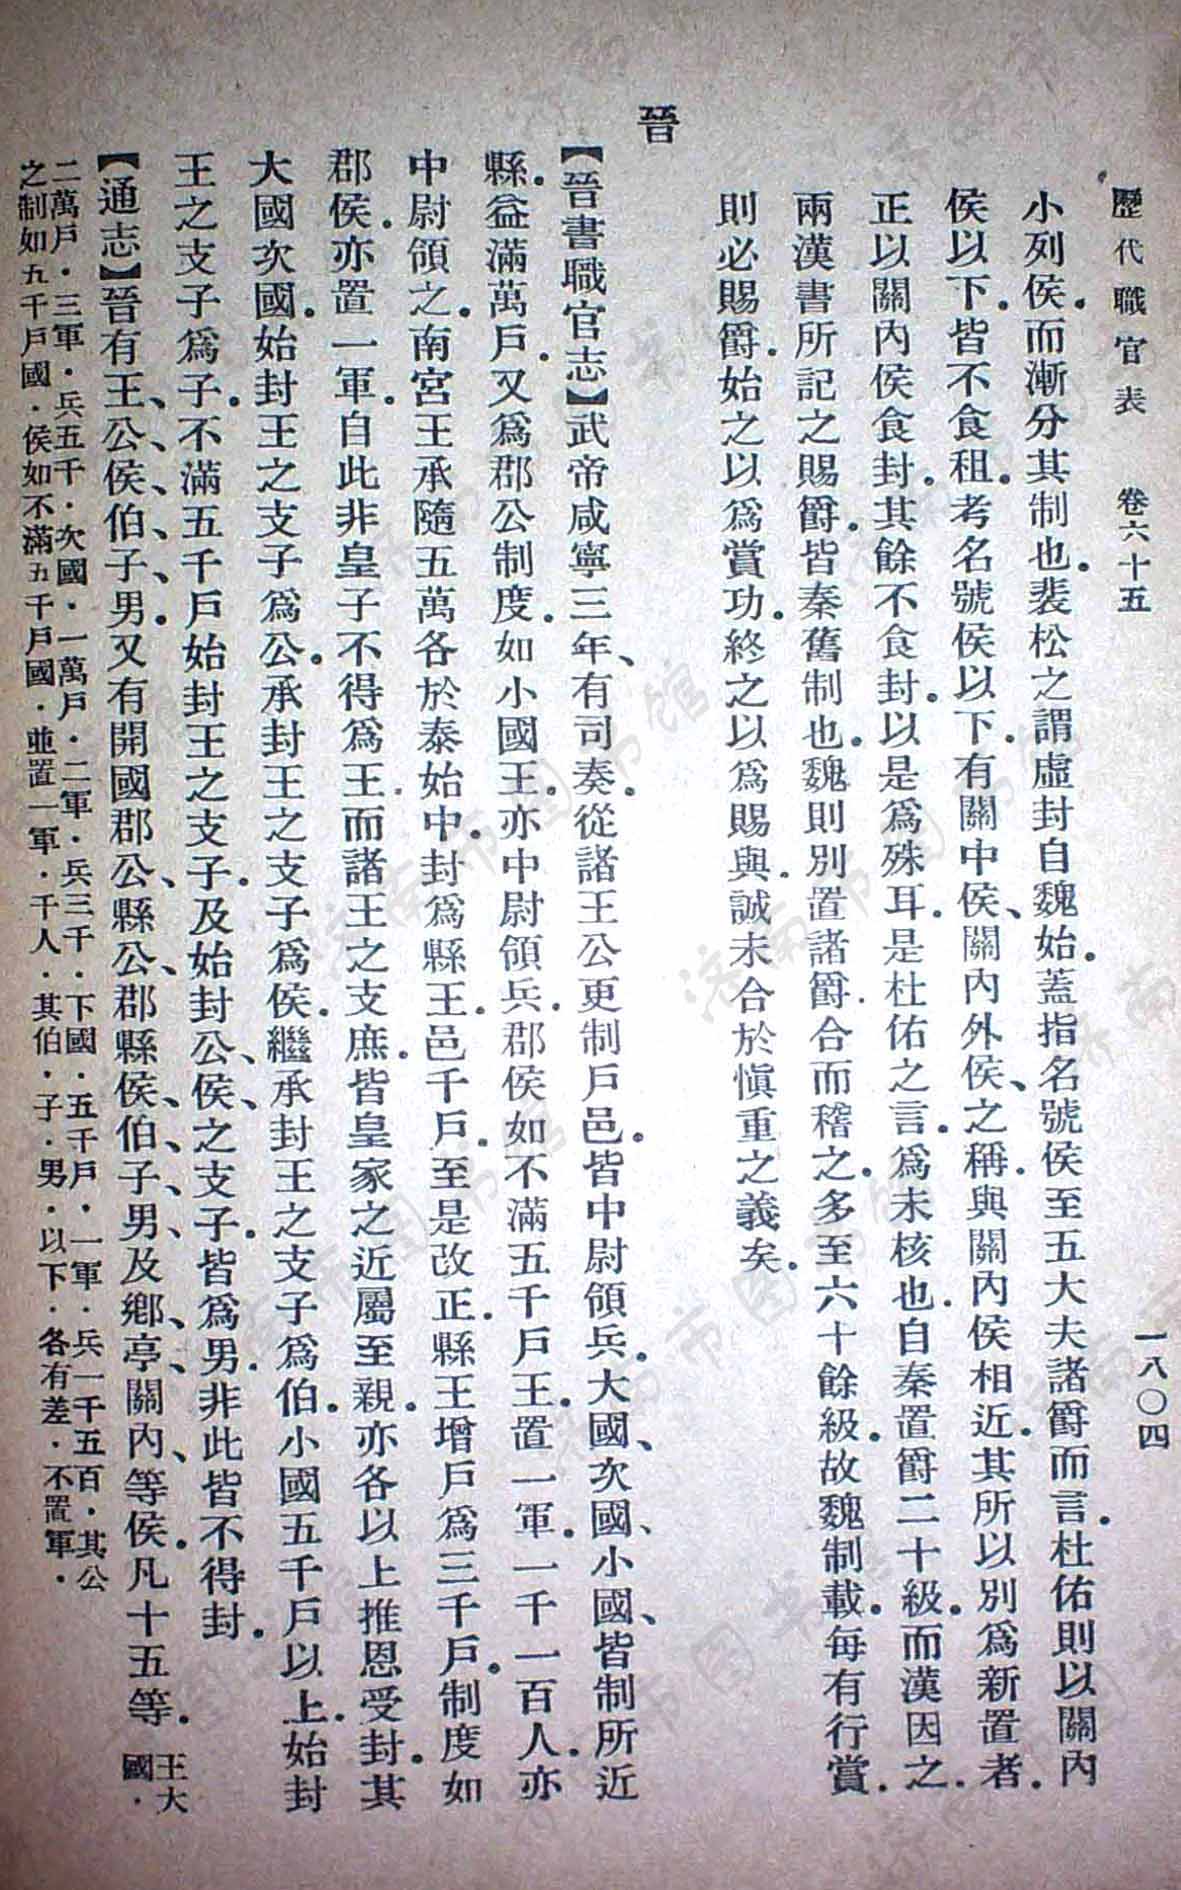 歷代職官表　卷六十五　一八〇四
小列侯．而漸分其制也．裴松之謂虛封自魏始．蓋指名號侯至五大夫諸爵而言．杜佑則以關內
侯以下．皆不食租．考名號侯以下．有關中侯、關內外侯、之稱．與關內侯相近．其所以別爲新置者．
正以關內侯食封．其餘不食封．以是爲殊耳．是杜佑之言．爲未核也．自秦置爵二十級．而漢因之．
兩漢書所記之賜爵．皆秦舊制也．魏則別置諸爵．合而稽之．多至六十餘級．故魏制載．每有行賞．
則必賜爵．始之以爲賞功．終之以爲賜與．誠未合於愼重之義矣．
晉
【晉書職官志】武帝咸寧三年、有司奏．從諸王公更制戶邑．皆中尉領兵．大國、次國、小國、皆制所近
縣．益滿萬戶．又爲郡公制度．如小國王．亦中尉領兵．郡侯如不滿五千戶王．置一軍．一千一百人．亦
中尉領之．南宮王承隨五萬各於泰始中．封爲縣王．邑千戶．至是改正．縣王增戶爲三千戶．制度如
郡侯．亦置一軍．自此非皇子不得爲王．而諸王之支庶．皆皇家之近屬至親．亦各以上推恩受封．其
大國次國．始封王之支子爲公．承封王之支子爲侯．繼承封王之支子爲伯．小國五千戶以上．始封
王之支子爲子．不滿五千戶始封王之支子．及始封公、侯、之支子．皆爲男．非此皆不得封．
【通志】晉有王、公、侯、伯、子、男．又有開國郡公、縣公、郡縣侯、伯、子、男、及鄉、亭、關內、等侯．凡十五等．王大
國．
二萬戶．三軍．兵五千．次國．一萬戶．二軍．兵三千．下國．五千戶．一軍．兵一千五百．其公
之制如五千戶國．侯如不滿五千戶國．並置一軍．千人．其伯．子．男．以下．各有差．不置軍．